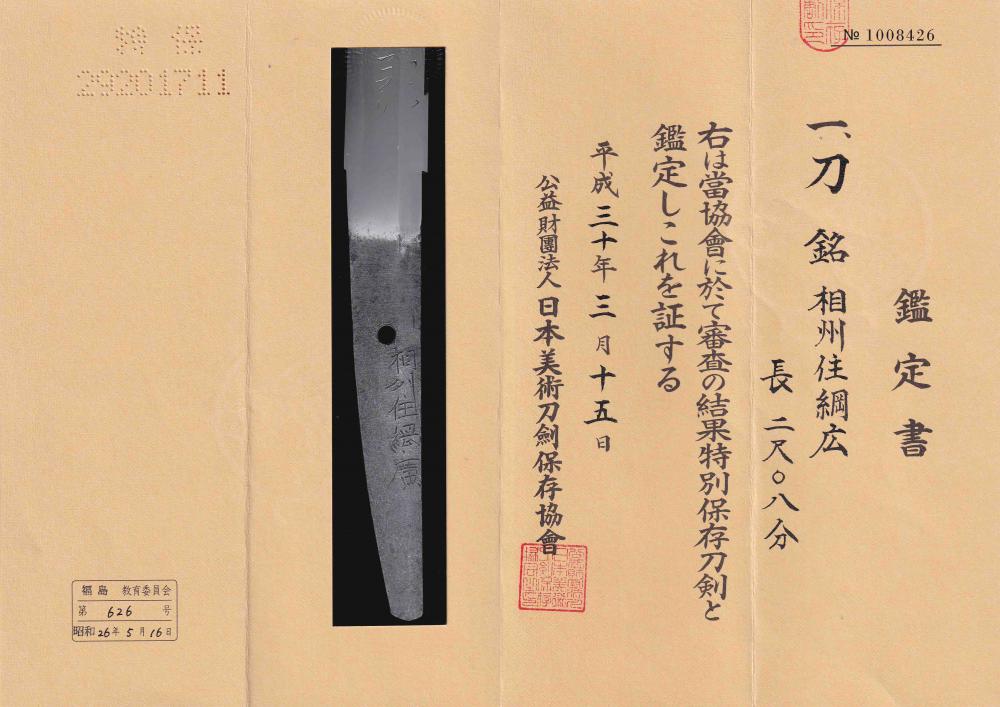 № 1008426
鑑定書
一、刀 銘 相州住綱広
長 二尺〇八分
右は當協會に於て審査の結果特別保存刀剣と
鑑定しこれを証する
平成三十年三月十五日
公益財團法人 日本美術刀劍保存協會
相州住綱廣
特 保
29201711
福島 教育委員会
第 626 号
昭和26年5月16日